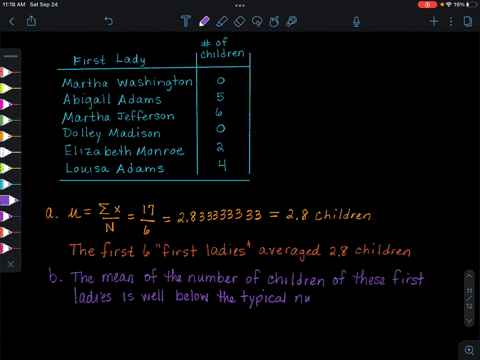 11:18 AM Sat Sep 24
19%
First Lady
# of
children
Martha Washington 0
Abigail Adams 5
Martha Jefferson 6
Dolley Madison 0
Elizabeth Monroe 2
Louisa Adams 4
a. μ = Σx/N = 17/6 = 2.833333333 = 2.8 children
The first 6 "first ladies" averaged 2.8 children
b. The mean of the number of children of these first
ladies is well below the typical nu
11
/
12